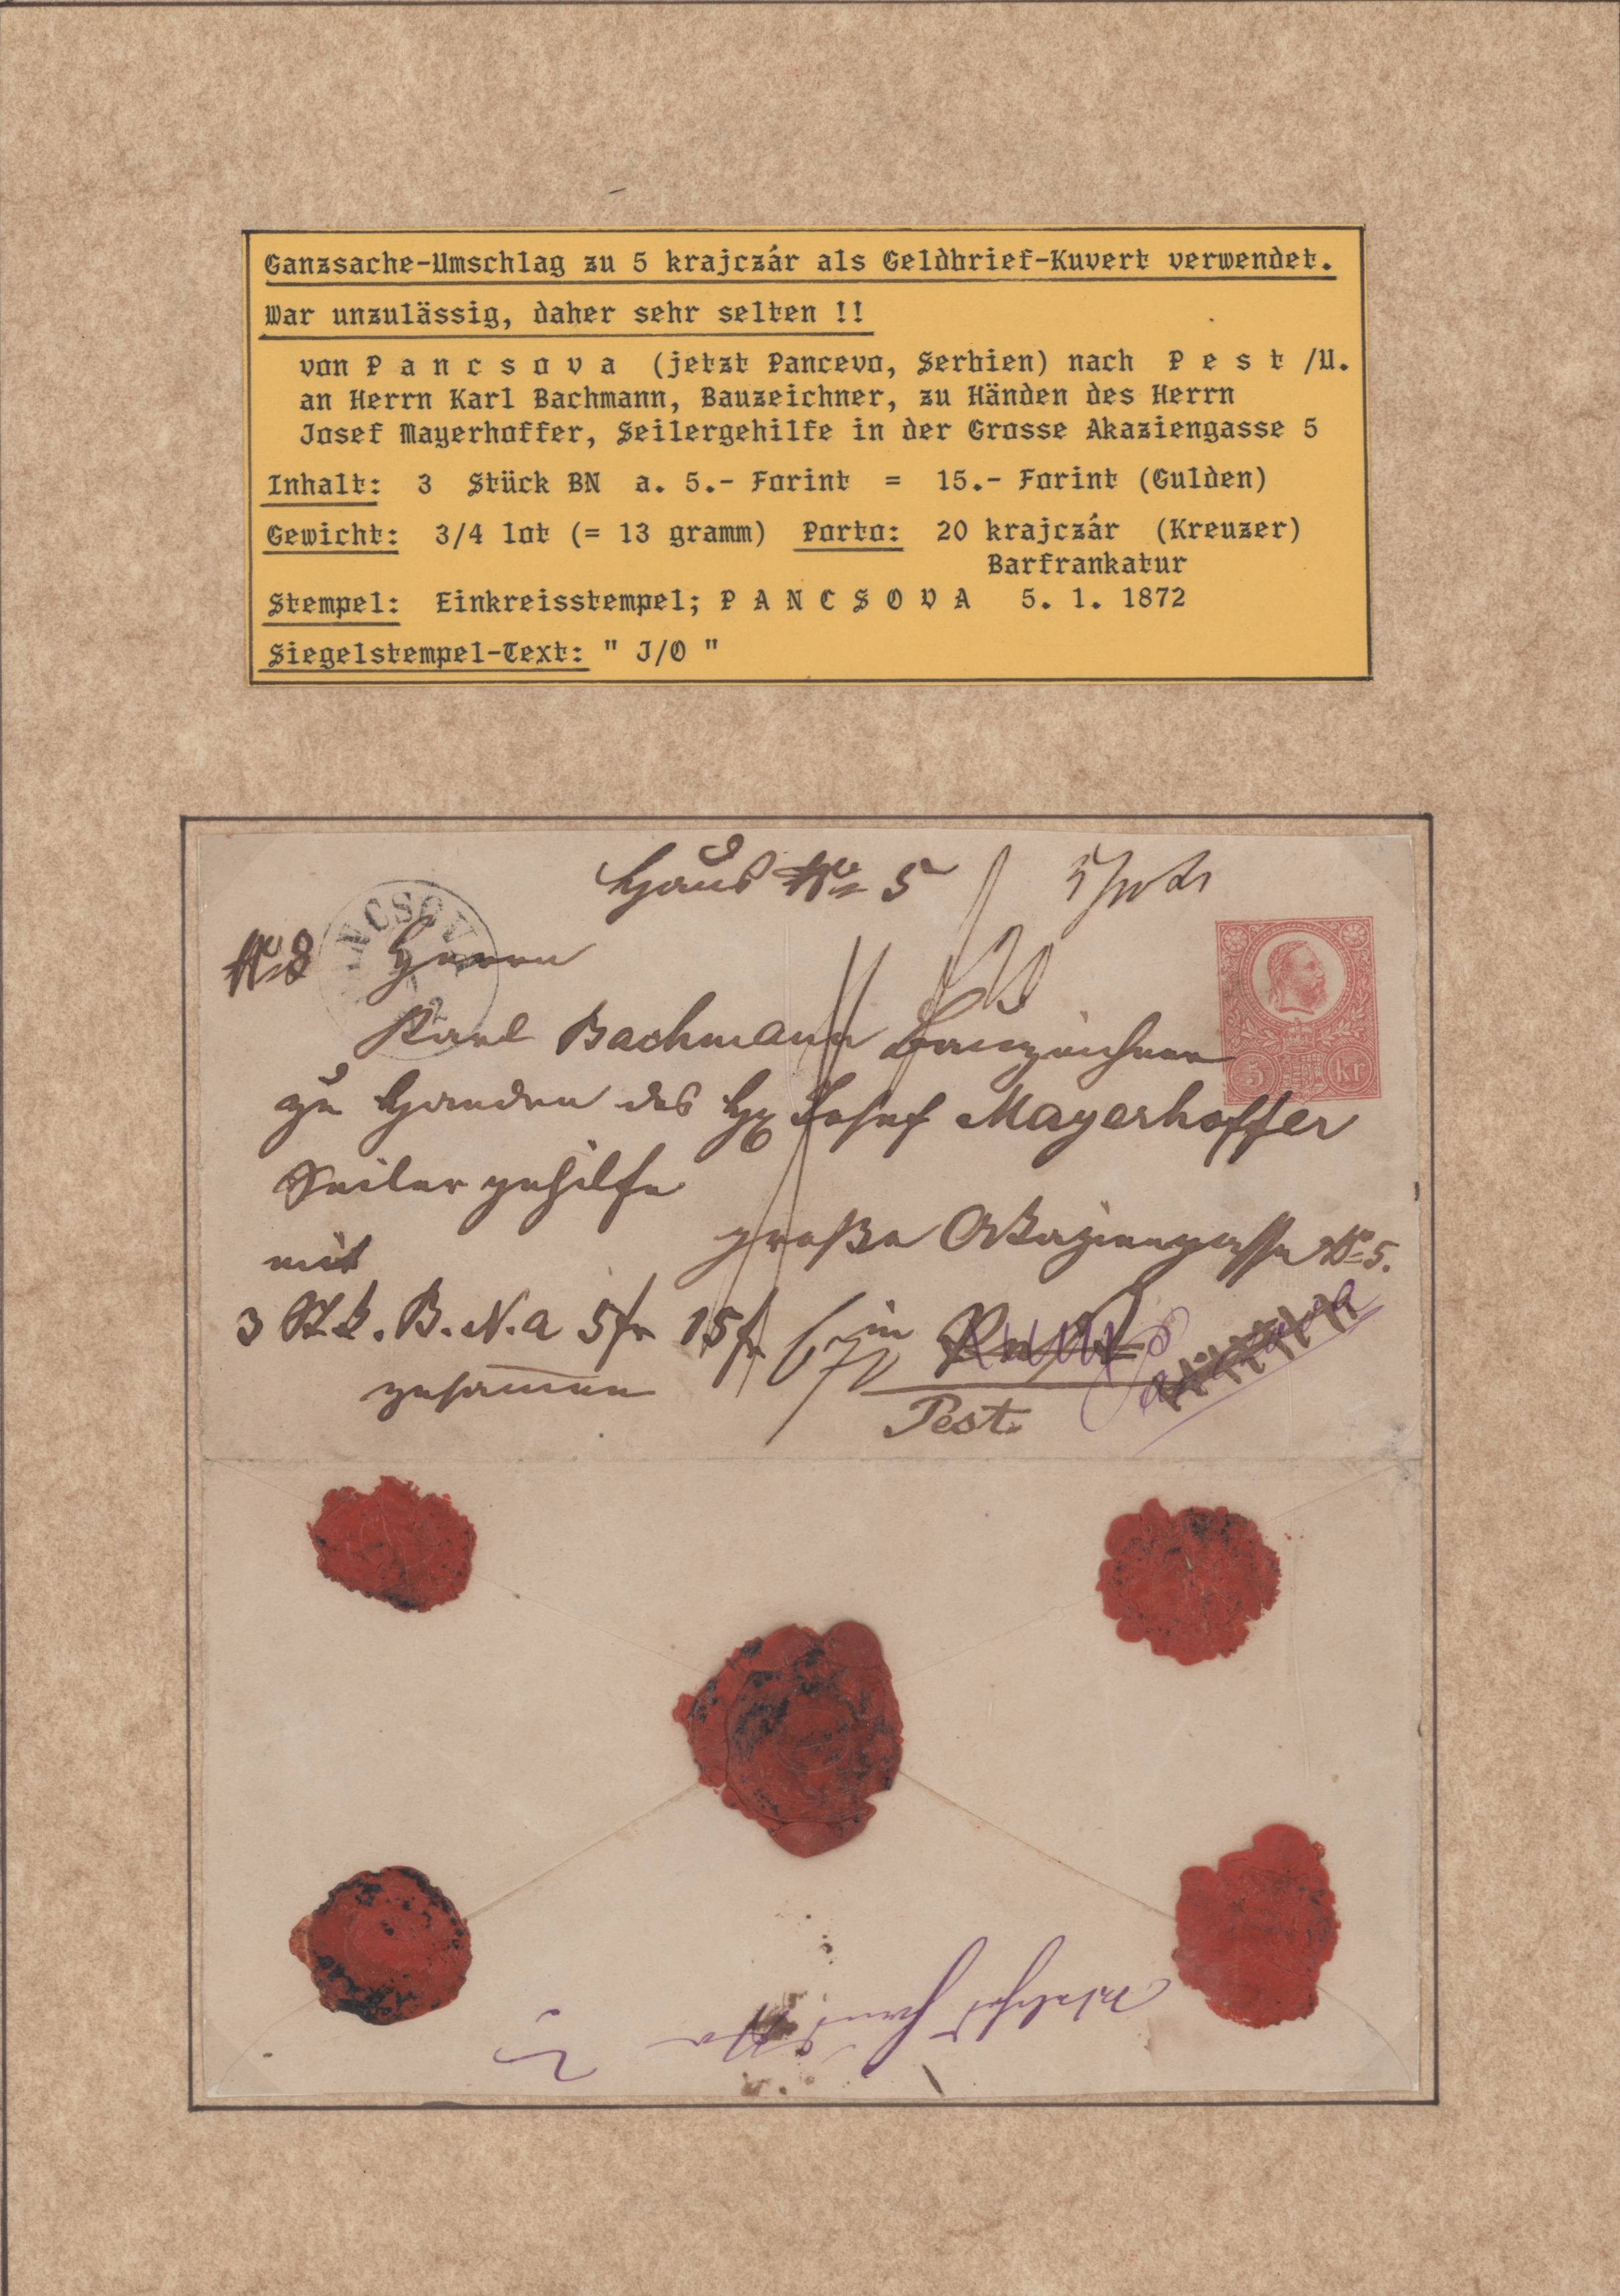 Ganzsache-Umschlag zu 5 krajczár als Geldbrief-Kuvert verwendet.
War unzulässig, daher sehr selten !!
von P a n c s o v a (jetzt Pancevo, Serbien) nach P e s t /U.
an Herrn Karl Bachmann, Bauzeichner, zu Händen des Herrn
Josef Mayerhoffer, Seilergehilfe in der Grosse Akaziengasse 5
Inhalt: 3 Stück BN a. 5.- Forint = 15.- Forint (Gulden)
Gewicht: 3/4 lot (= 13 gramm) Porto: 20 krajczár (Kreuzer)
Barfrankatur
Stempel: Einkreisstempel; P A N C S O V A 5. 1. 1872
Siegelstempel-Text: " J/O "
Haus No 5
No 8 Herrn
Karl Bachmann Bauzeichner
5 kr
zu Handen des Hr Josef Mayerhoffer
Seilergehilfe
große Akaziengasse No 5.
mit
3 Stk. B.N. a 5fr 15fr
in
zusammen
Pest